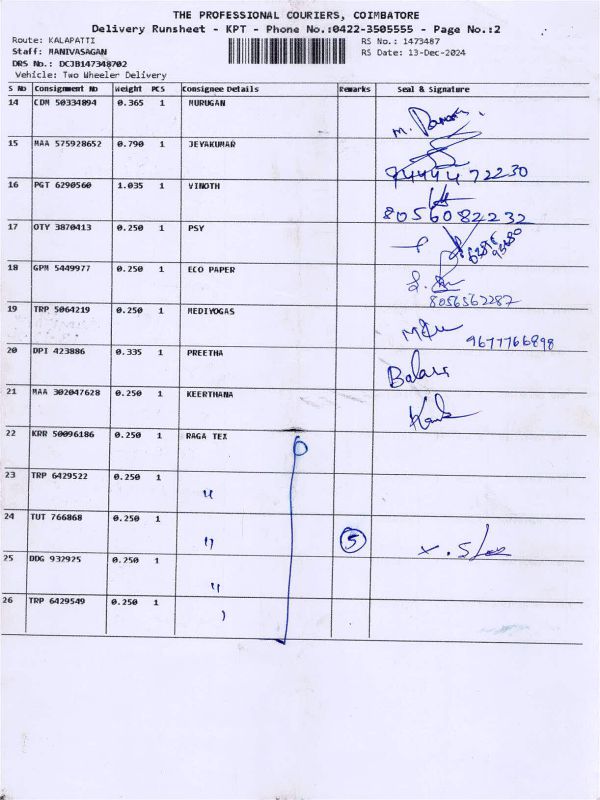 THE PROFESSIONAL COURIERS, COIMBATORE
Delivery Runsheet - KPT - Phone No.:0422-3505555 - Page No.:2
Route: KALAPATTI RS No.: 1473487
Staff: MANIVASAGAN RS Date: 13-Dec-2024
DRS No.: DCJB147348702
Vehicle: Two Wheeler Delivery
S No Consignment No Weight PCS Consignee Details Remarks Seal & Signature
14 CDM 50334894 0.365 1 MURUGAN
15 MAA 575928652 0.790 1 JEYAKUMAR
9444472230
16 PGT 6290560 1.035 1 VINOTH
8056082232
17 OTY 3870413 0.250 1 PSY
18 GPM 5449977 0.250 1 ECO PAPER
8056562287
19 TRP 5064219 0.250 1 MEDIYOGAS
9677766898
20 DPI 423886 0.335 1 PREETHA
21 MAA 302047628 0.250 1 KEERTHANA
22 KRR 50096186 0.250 1 RAGA TEX
23 TRP 6429522 0.250 1 "
24 TUT 766868 0.250 1 " 5
25 DDG 932925 0.250 1 "
26 TRP 6429549 0.250 1